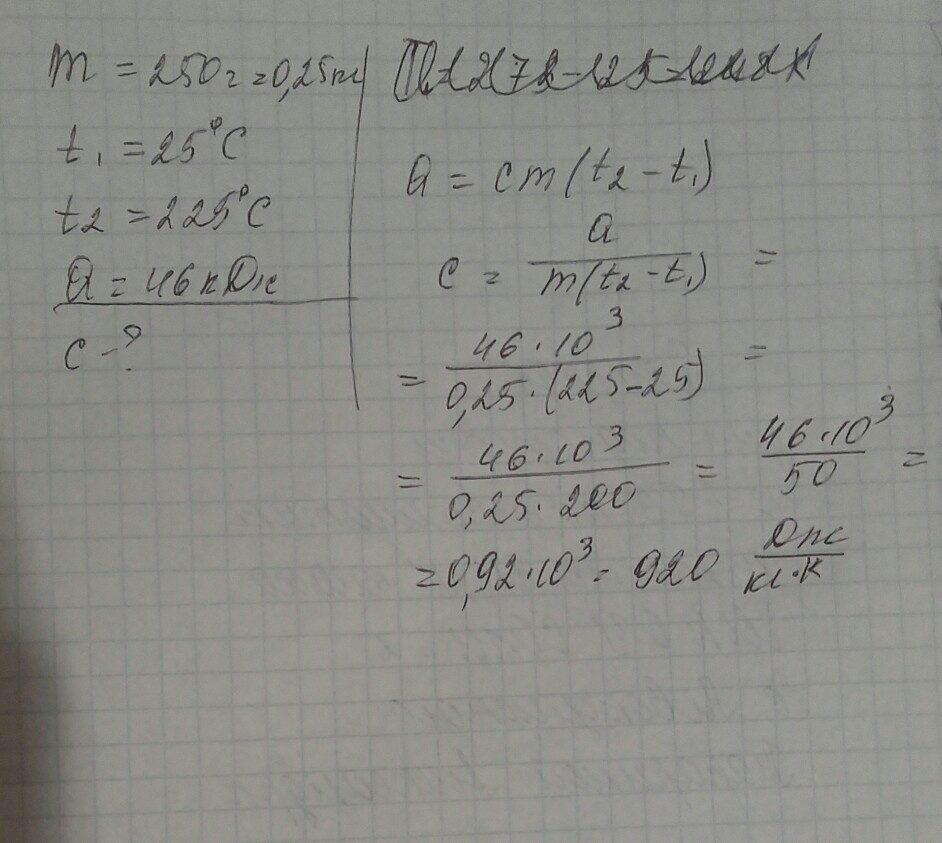 m = 250г = 0,25кг
t₁ = 25°C
t₂ = 225°C
Q = 46 кДж
c - ?
Q = cm(t₂ - t₁)
c = Q / m(t₂ - t₁) =
= 46·10³ / 0,25·(225-25) =
= 46·10³ / 0,25·200 = 46·10³ / 50 =
= 0,92·10³ = 920 Дж / кг·К